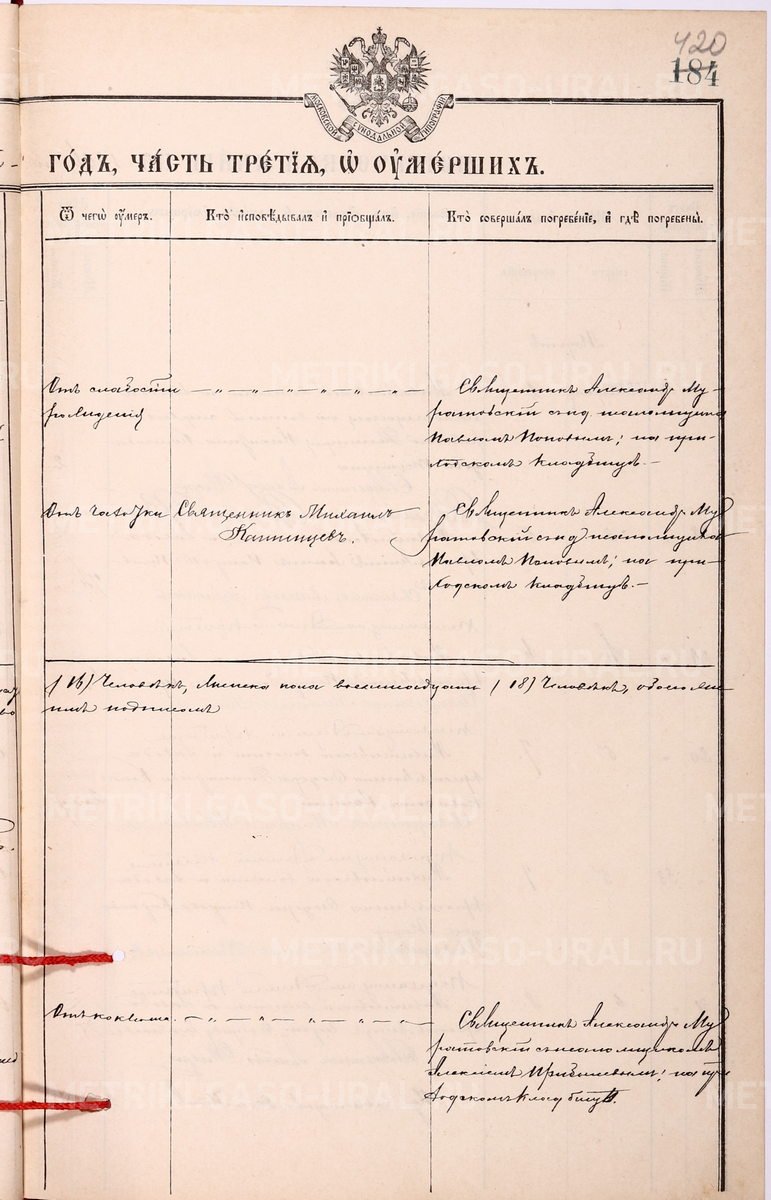 420
184
МОСКОВСКОЙ СѴНОДАЛЬНОЙ ТИПОГРАФІИ
ГО́ДЪ, ЧА́СТЬ ТРЕ́ТІѦ, Ѡ҆ ОУ҆МЕ́РШИХЪ.
Ѿ чегѡ̀ оу҆́меръ.
Кто̀ и҆сповѣ́дывалъ и҆ прїѡбща́лъ.
Кто̀ соверша́лъ погребе́нїе, и҆ гдѣ̀ погребены̀.
Отъ слабости
рожденія
Священникъ Александръ Му-
ратовскій съ и.д. псаломщика
Павломъ Поповымъ; на при-
ходскомъ кладбищѣ.—
Отъ чахотки
Священникъ Михаилъ
Священникъ Александръ Му
ратовскій съ и.д. псаломщика
Павломъ Поповымъ; на при-
ходскомъ кладбищѣ.—
(16) Человѣкъ, женска пола восемнадцать (18) Человѣкъ,
подписомъ
Отъ коклюша.
Священникъ Александръ Му
ратовскій съ псаломщикомъ
Алексіемъ на при
ходскомъ кладбищѣ.
METRIKI.GASO-URAL.RU